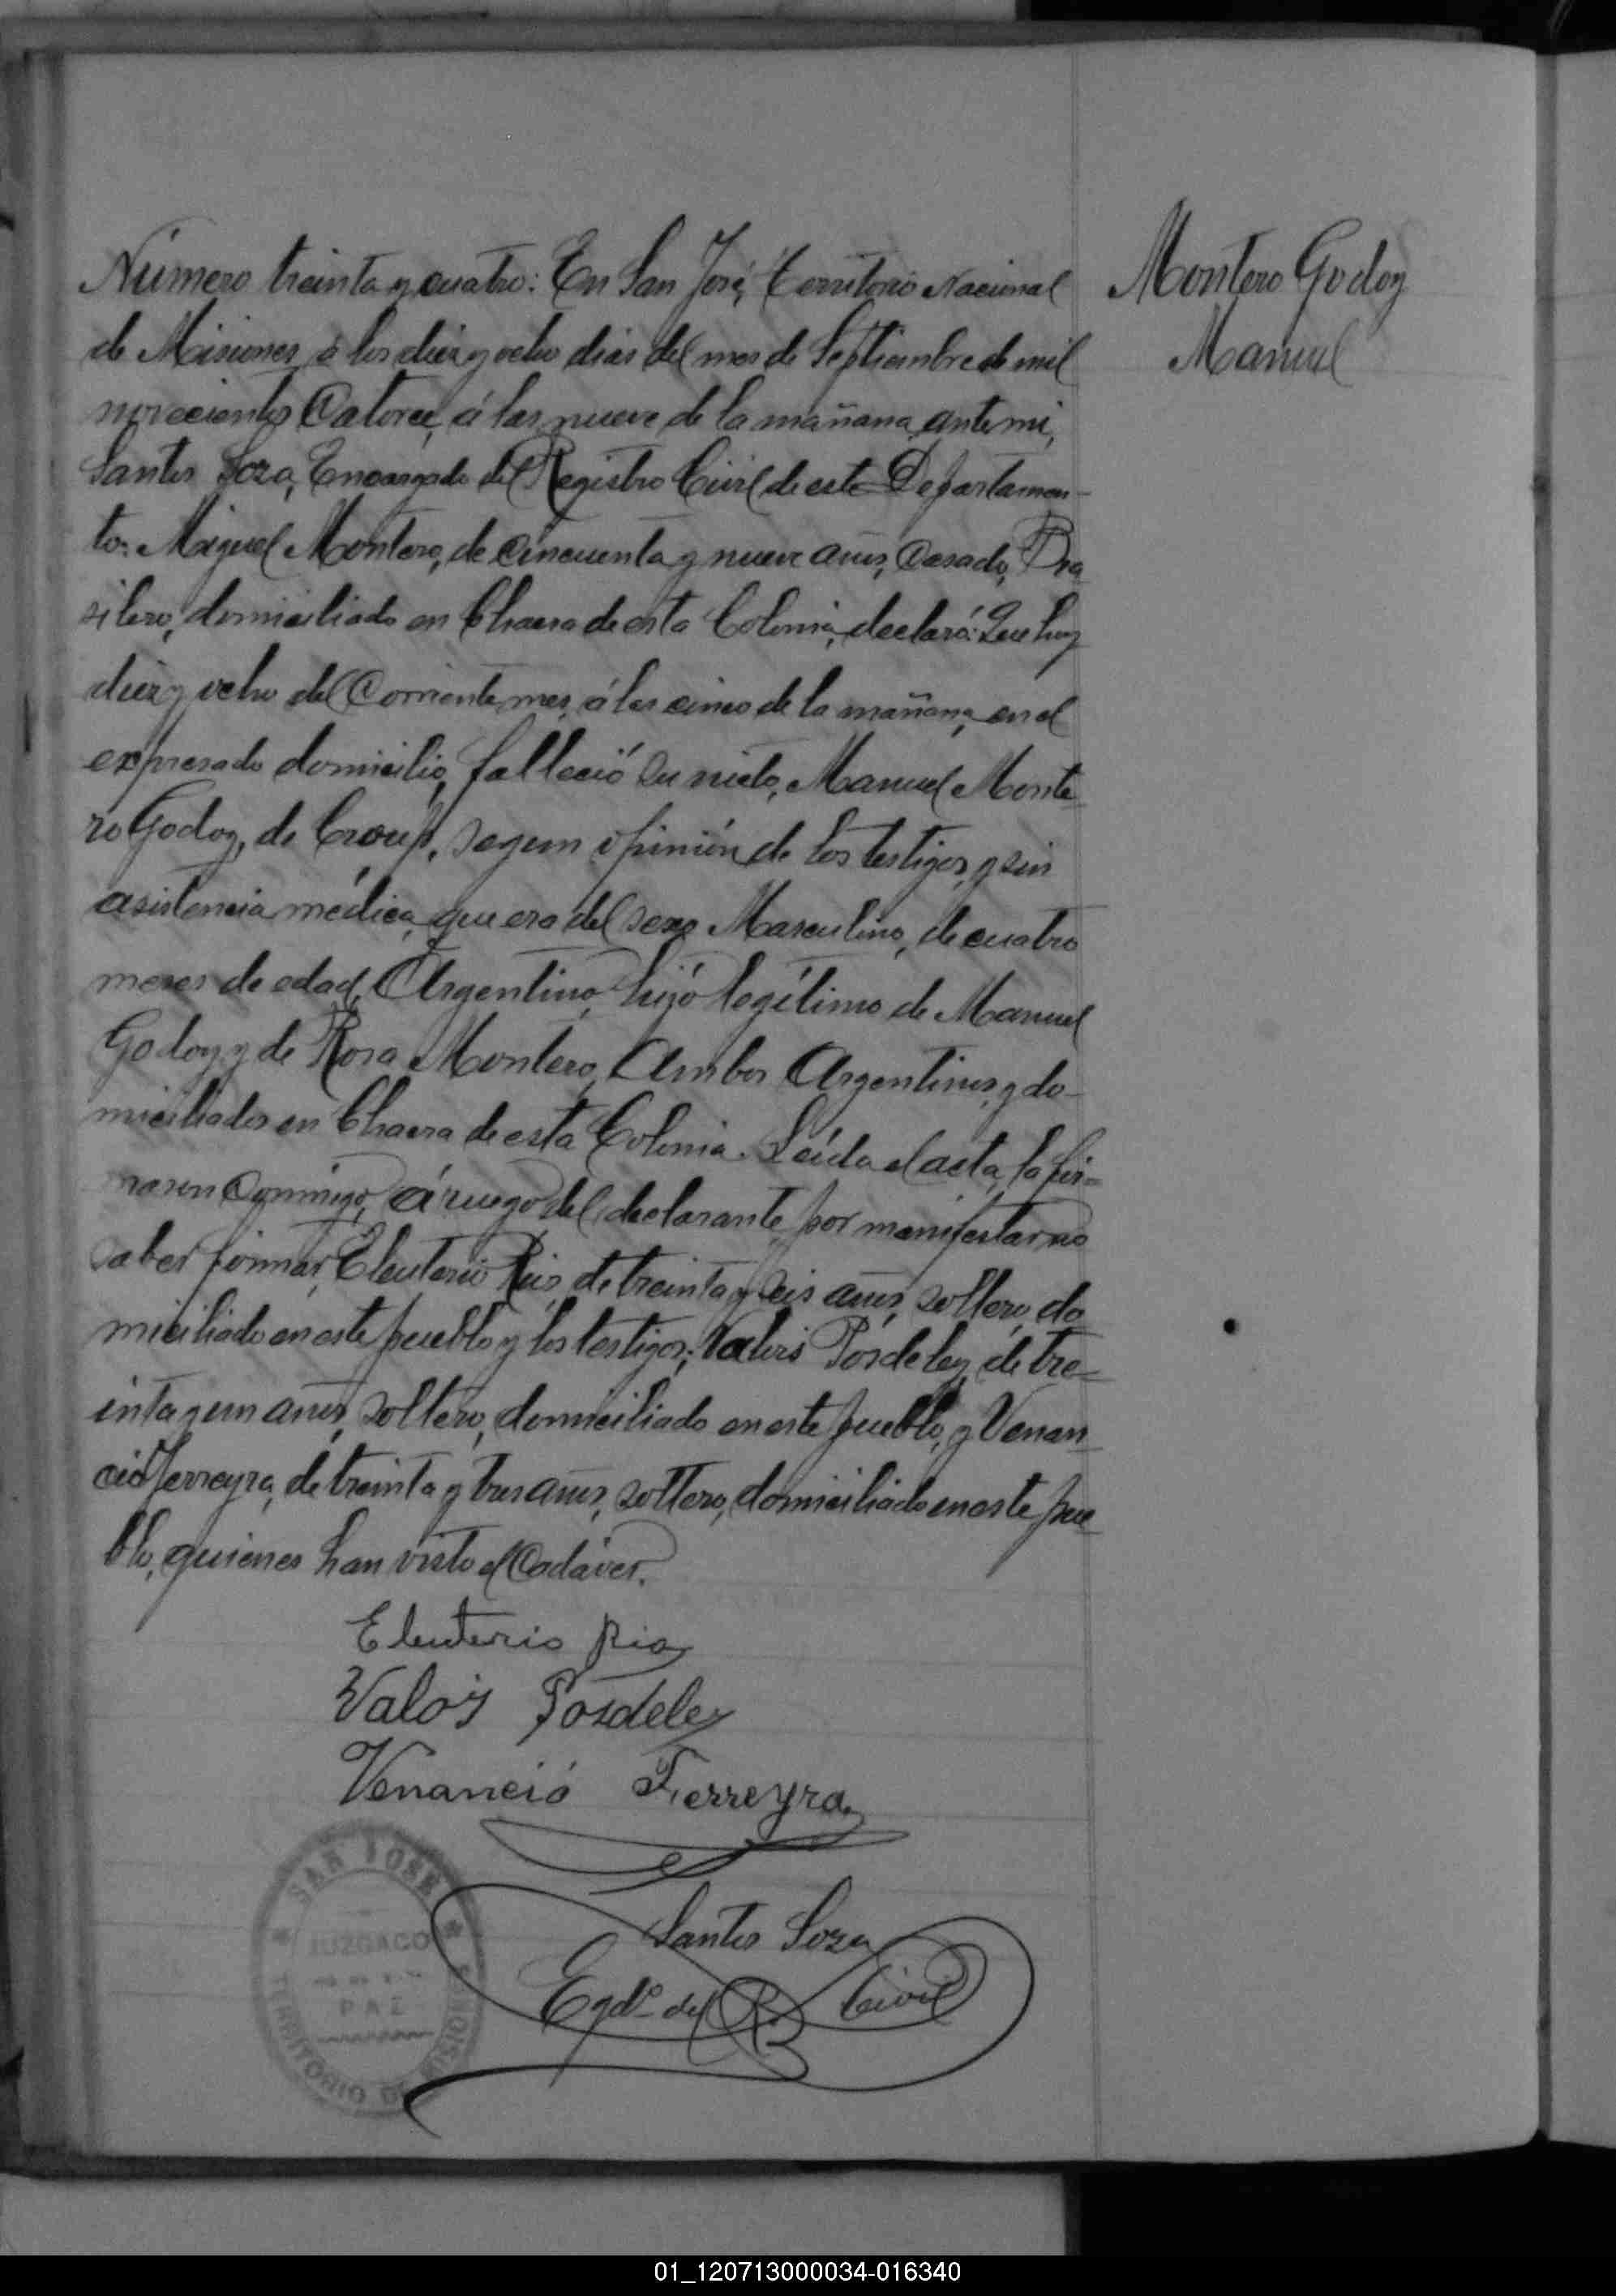 Número treinta y cuatro: En San José, Territorio Nacional
de Misiones, á los diez y ocho dias del mes de Septiembre de mil
novecientos Catorce, á las nueve de la mañana, ante mi,
Santos Soza, Encargado del Registro Civil de este Departamen-
to: Miguel Montero, de Cincuenta y nueve años, Casado, Bra
silero, domiciliado en Chacra de esta Colonia, declaró: Que hoy
diez y ocho del Corriente mes, á las cinco de la mañana, en el
expresado domicilio, falleció su nieto, Manuel Monte
ro Godoy, de Croup, segun opinión de los testigos, y sin
asistencia médica, que era del sexo Masculino, de cuatro
meses de edad, Argentino, hijo legítimo de Manuel
Godoy y de Rosa Montero, Ambos Argentinos, y do-
miciliados en Chacra de esta Colonia. Leída el acta, la fir=
maron Conmigo, á ruego del declarante, por manifestar no
saber firmar, Eleuterio Rios, de treinta y seis años, soltero, do
miciliado en este pueblo y los testigos; Valois Posdeley, de tre=
inta y un años, soltero, domiciliado en este pueblo, y Venan
cio Ferreyra, de treinta y tres años, soltero, domiciliado en este pue
blo, quienes han visto el Cadáver.
Eleuterio Rios
Valois Posdeley
Venancio Ferreyra
Santos Soza
Egdo. del R. Civil
Montero Godoy
Manuel
SAN JOSE
JUZGADO
PAZ
TERRITORIO DE MISIONES
01_120713000034-016340